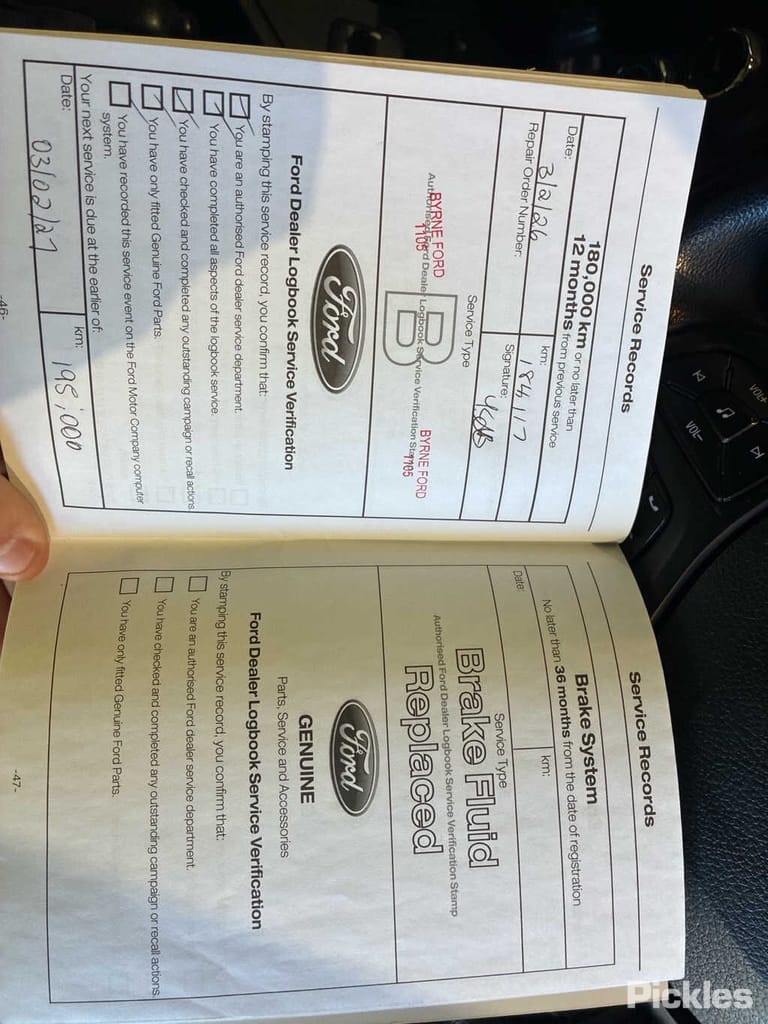 Service Records
180,000 km or no later than
12 months from previous service
Date: 3/2/26
km: 184117
Repair Order Number:
Signature:
Service Type
B
Authorised Ford Dealer Logbook Service Verification Stamp
BYRNE FORD
1105
BYRNE FORD
1105
Ford
Ford Dealer Logbook Service Verification
By stamping this service record, you confirm that:
You are an authorised Ford dealer service department.
You have completed all aspects of the logbook service.
You have checked and completed any outstanding campaign or recall actions.
You have only fitted Genuine Ford Parts.
You have recorded this service event on the Ford Motor Company computer
system.
Your next service is due at the earlier of:
Date: 03/02/27
km: 195,000
-46-
Service Records
Brake System
No later than 36 months from the date of registration
Date:
km:
Service Type
Brake Fluid
Authorised Ford Dealer Logbook Service Verification Stamp
Replaced
Ford
GENUINE
Parts, Service and Accessories
Ford Dealer Logbook Service Verification
By stamping this service record, you confirm that:
You are an authorised Ford dealer service department.
You have checked and completed any outstanding campaign or recall actions.
You have only fitted Genuine Ford Parts.
-47-
VOL+
VOL-
Pickles